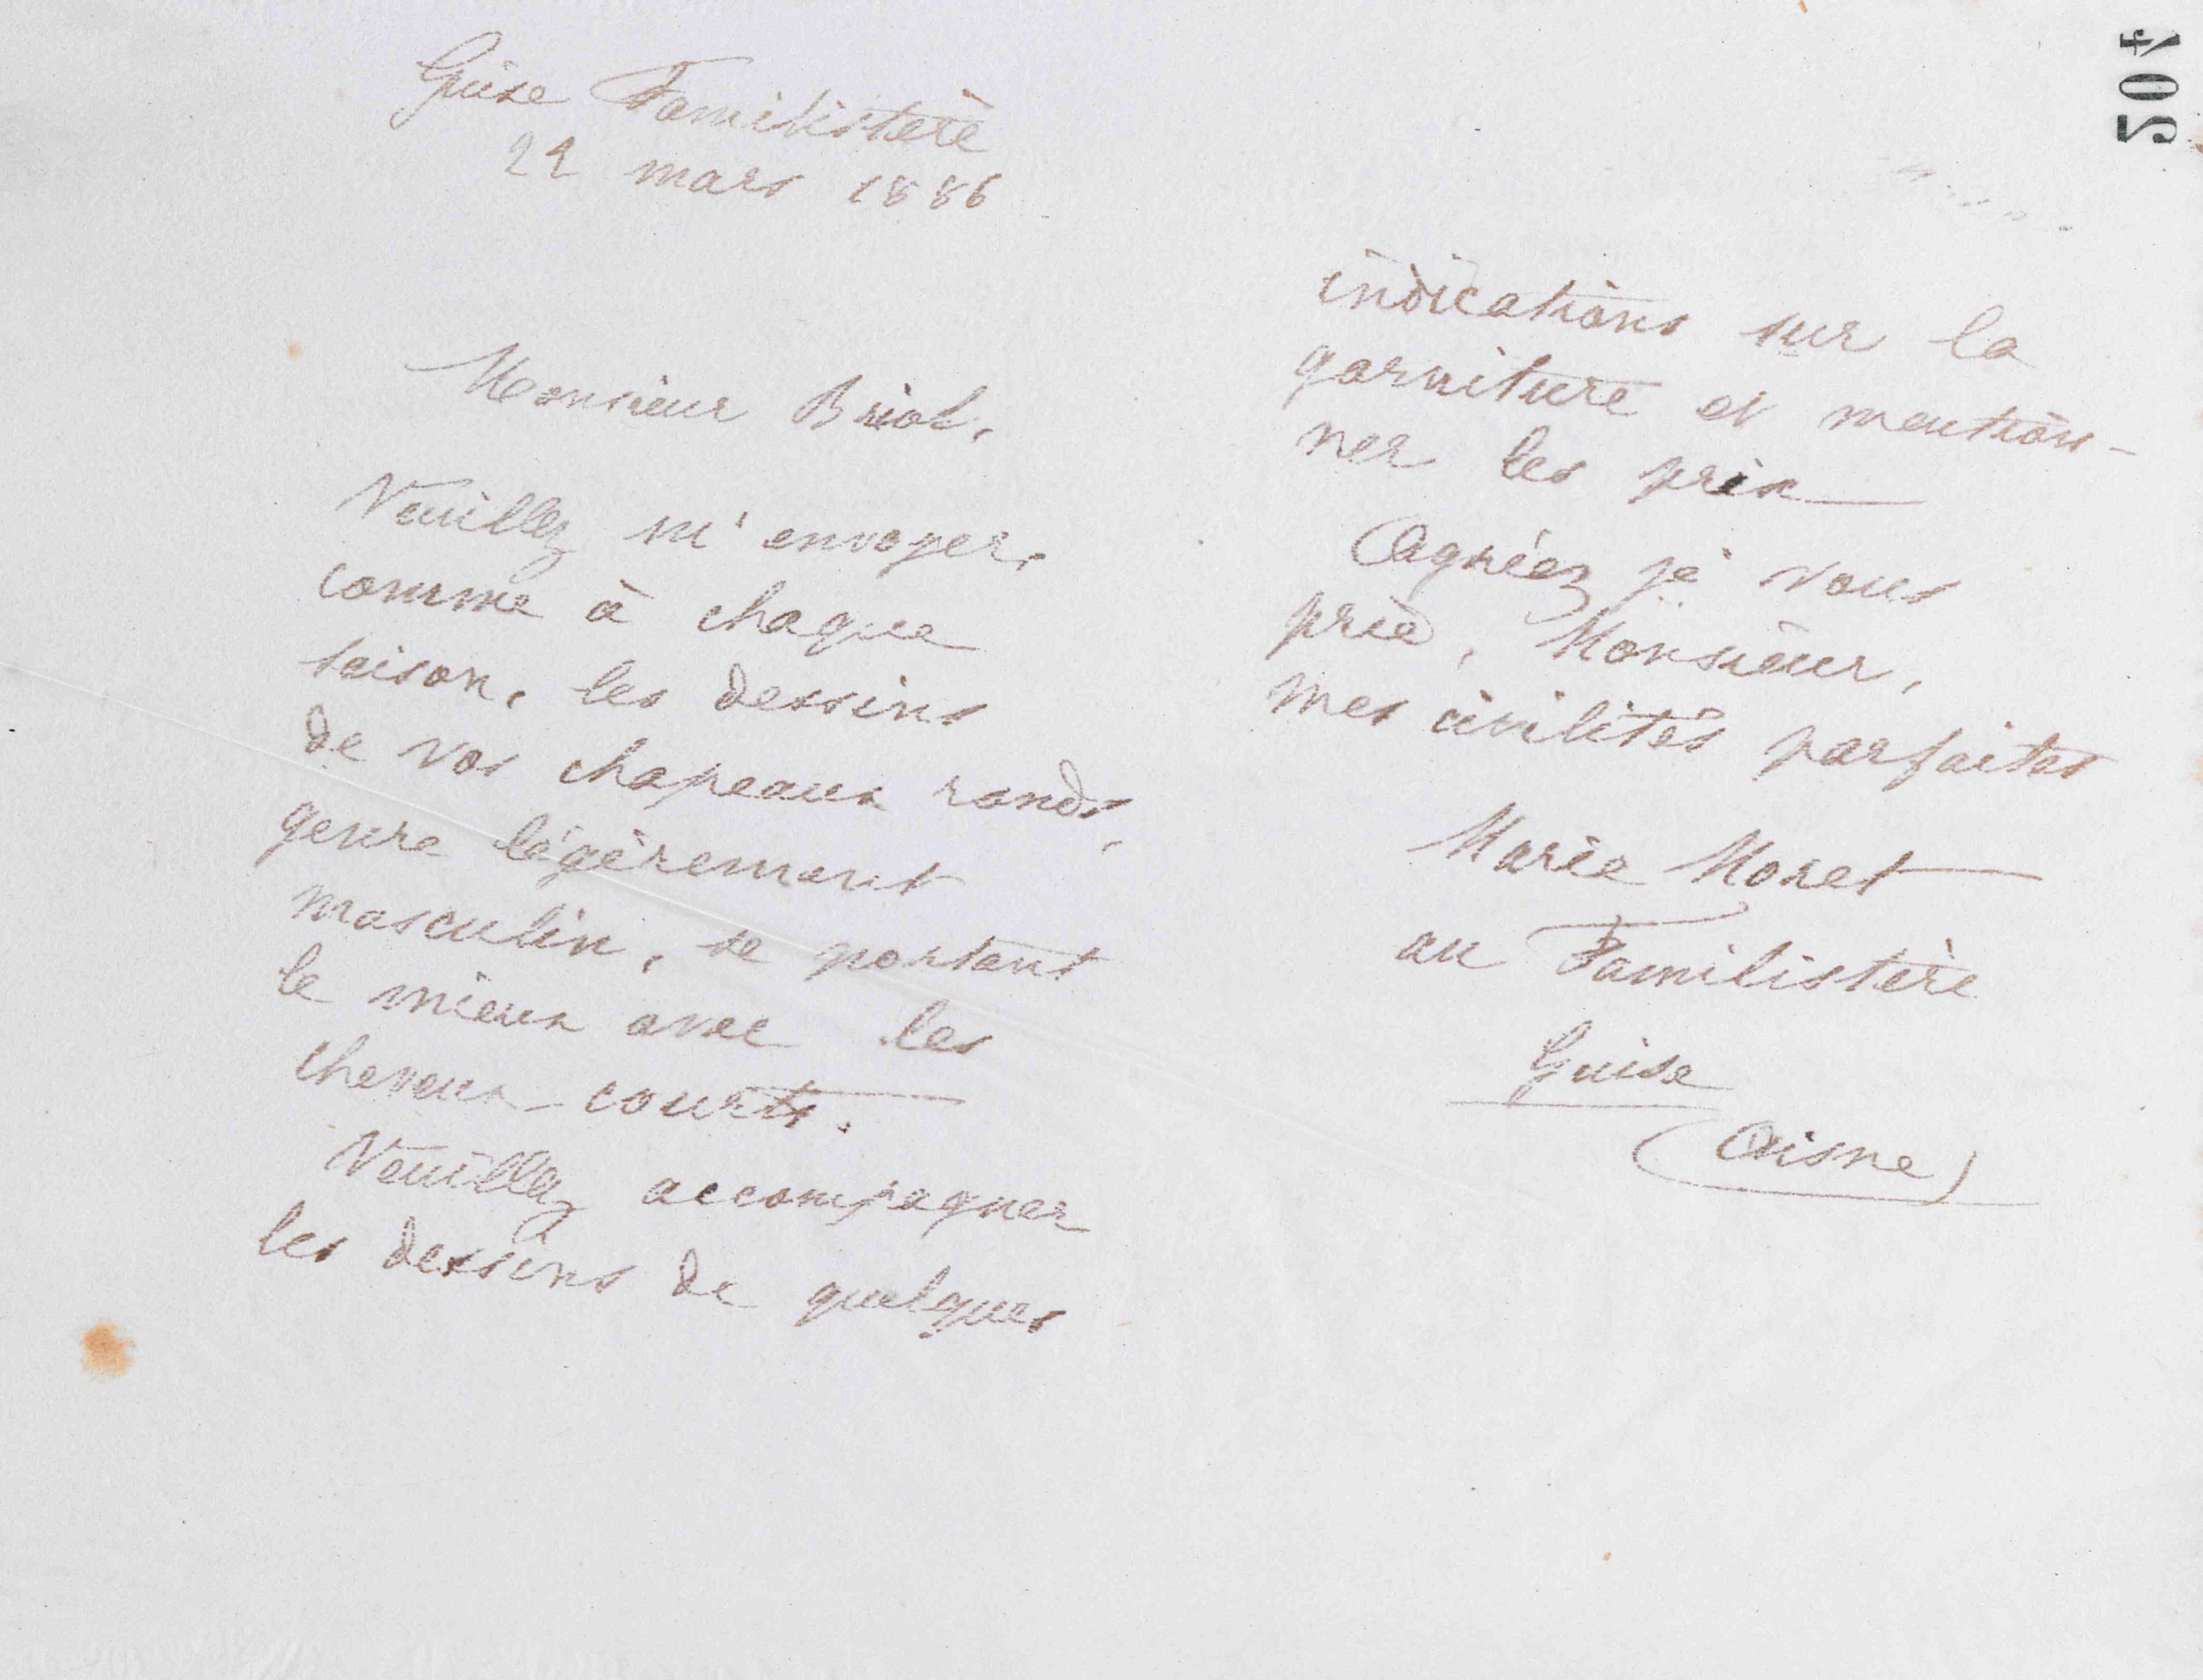 Guise Familistère
22 mars 1886
Monsieur Briol,
Veuillez m'envoyer,
comme à chaque
saison, les dessins
de vos chapeaux ronds,
genre légèrement
masculin, se portant
le mieux avec les
cheveux courts.
Veuillez accompagner
les dessins de quelques
507
indications sur la
garniture et mention-
ner les prix
Agréez je vous
prie, Monsieur,
mes civilités parfaites
Marie Moret
au Familistère
Guise
(Aisne)